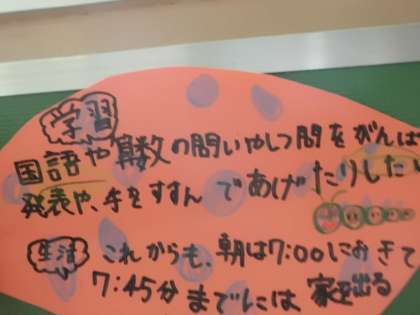 学習
国語や算数の問いやしつ問をがんば
発表や、手をすすんであげたりした
生活
これからも、朝は7:00におきて
7:45分までには家を出る